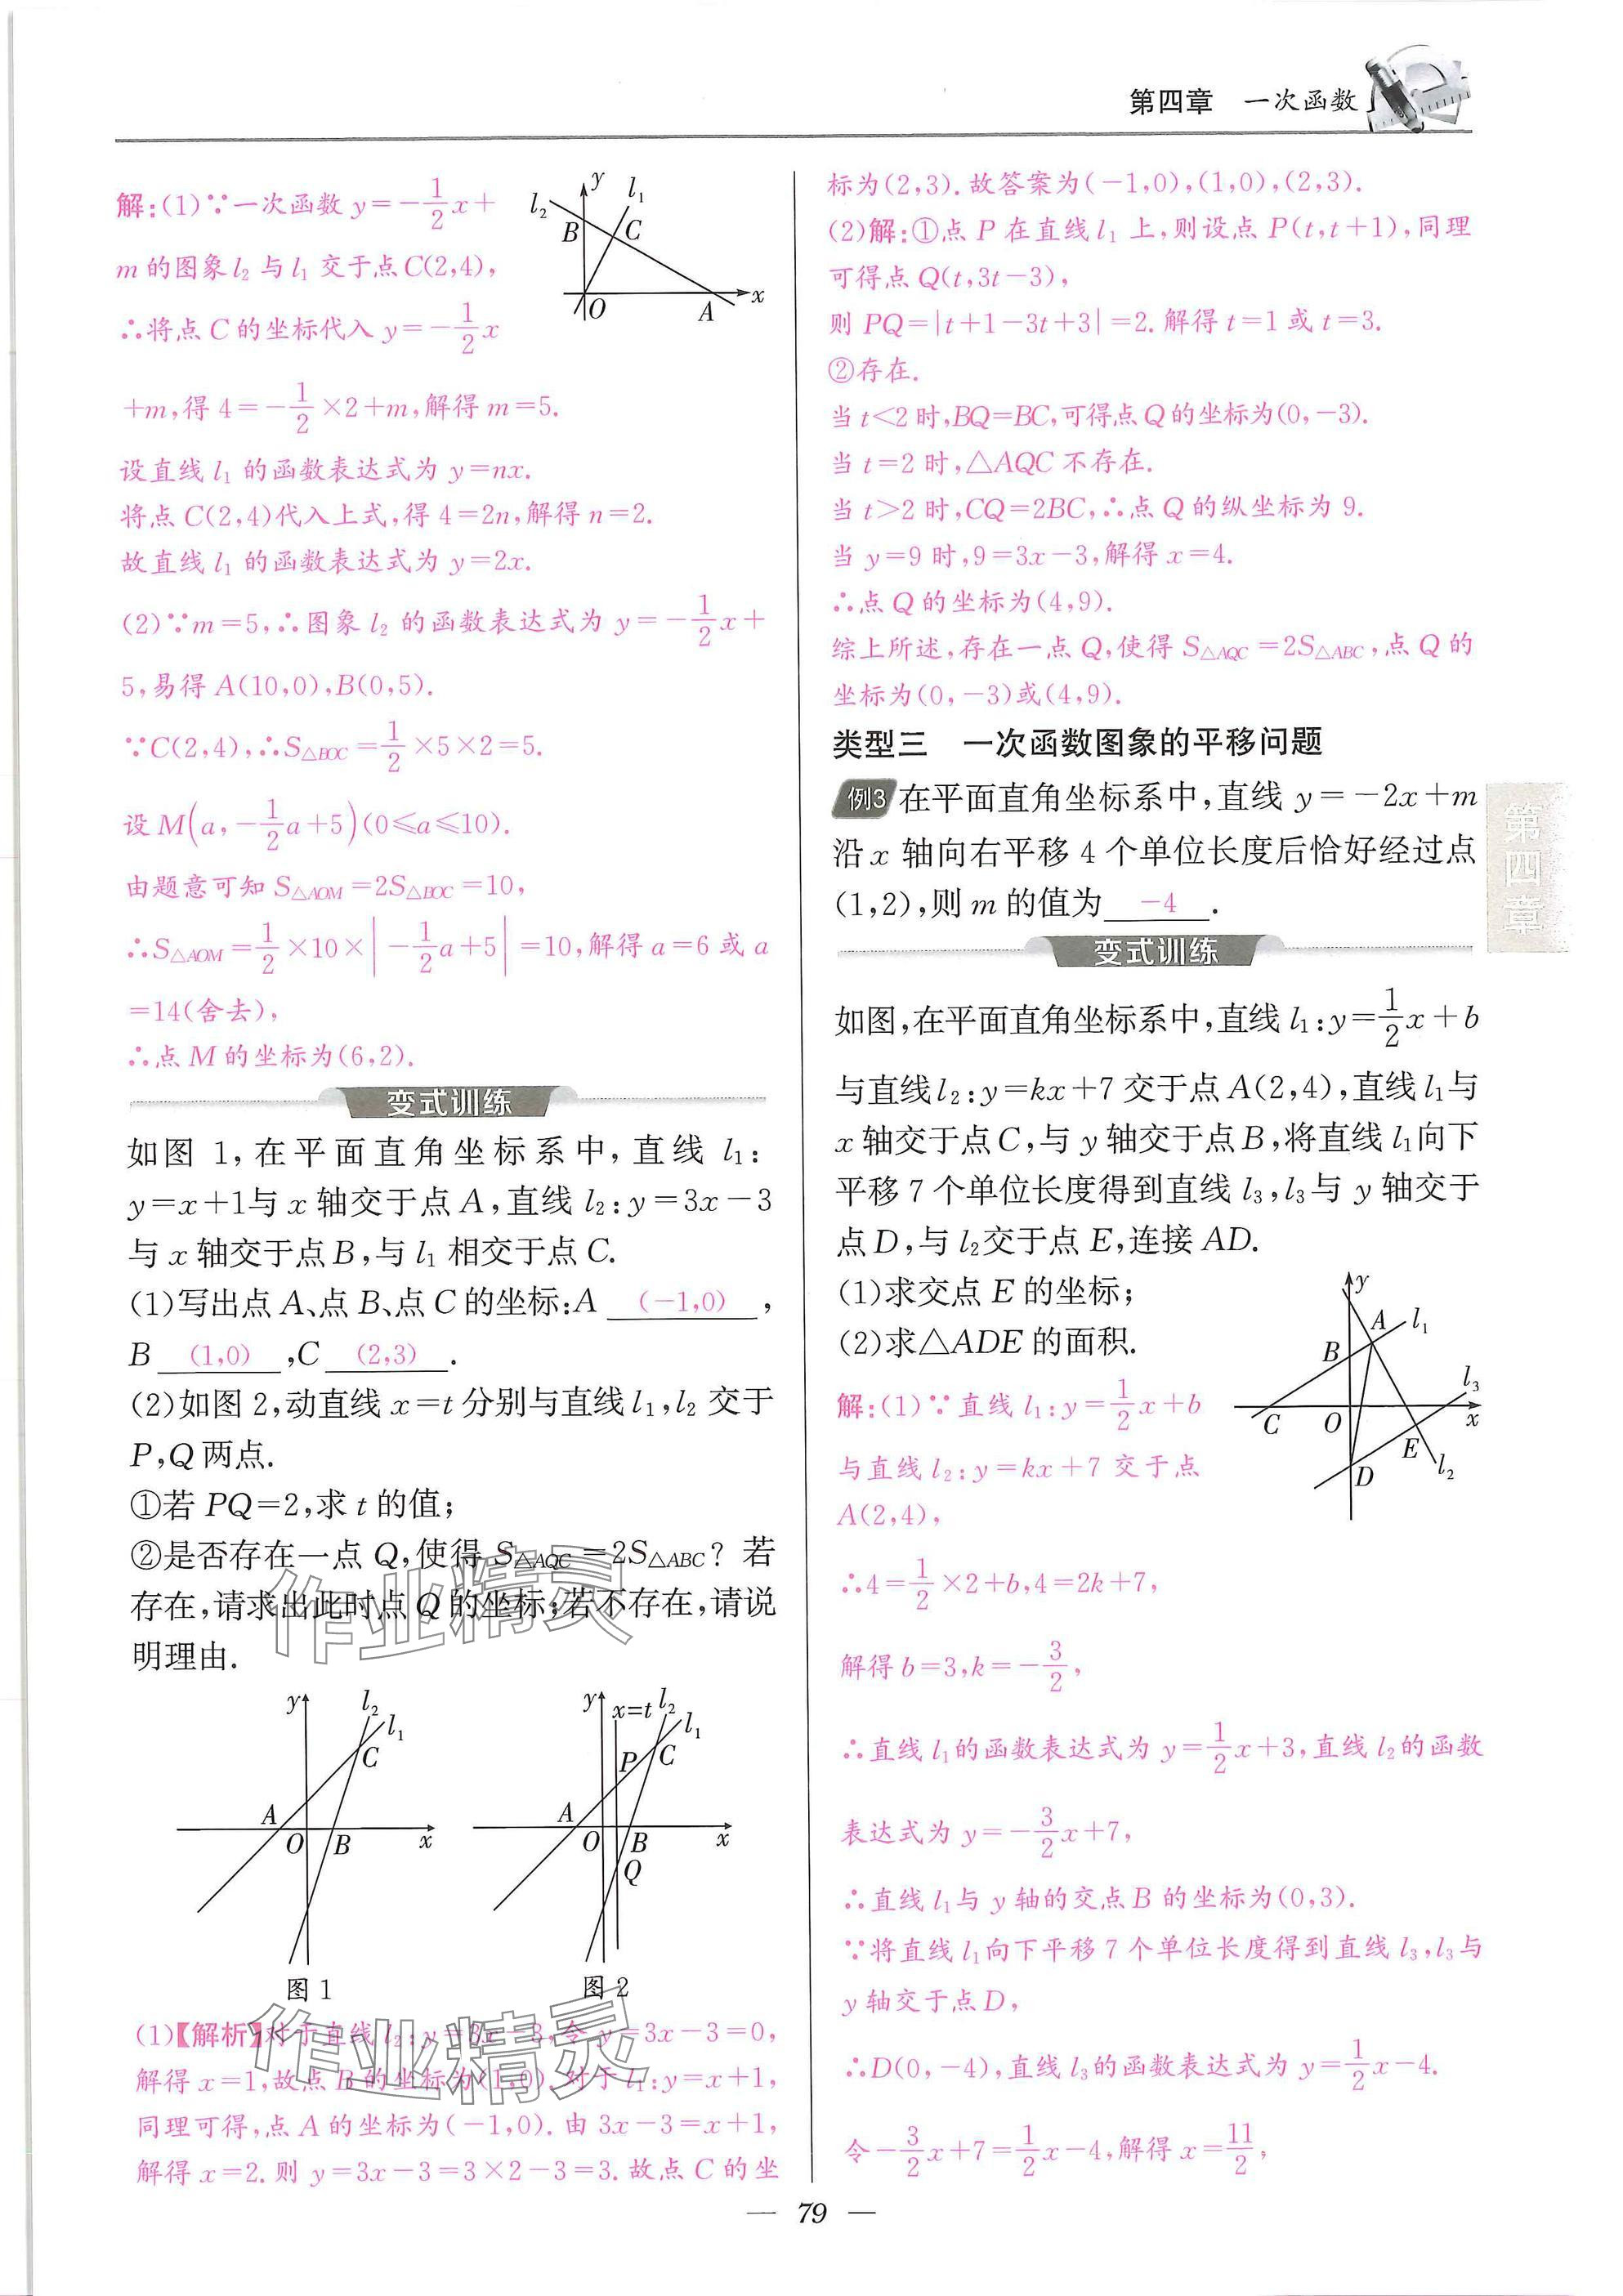 第四章 一次函数
解:(1)∵一次函数 y=-1/2x+
m 的图象 l₂ 与 l₁ 交于点 C(2,4),
∴将点 C 的坐标代入 y=-1/2x
+m,得 4=-1/2×2+m,解得 m=5.
y l₁ l₂ B C O A x
设直线 l₁ 的函数表达式为 y=nx.
将点 C(2,4)代入上式,得 4=2n,解得 n=2.
故直线 l₁ 的函数表达式为 y=2x.
(2)∵m=5,∴图象 l₂ 的函数表达式为 y=-1/2x+
5,易得 A(10,0),B(0,5).
∵C(2,4),∴S△BOC=1/2×5×2=5.
设 M(a,-1/2a+5)(0≤a≤10).
由题意可知 S△AOM=2S△BOC=10,
∴S△AOM=1/2×10×|-1/2a+5|=10,解得 a=6 或 a
=14(舍去),
∴点 M 的坐标为(6,2).
变式训练
如图 1,在平面直角坐标系中,直线 l₁:
y=x+1与 x 轴交于点 A,直线 l₂:y=3x-3
与 x 轴交于点 B,与 l₁ 相交于点 C.
(1)写出点 A、点 B、点 C 的坐标:A (-1,0) ,
B (1,0) ,C (2,3) .
(2)如图 2,动直线 x=t 分别与直线 l₁,l₂ 交于
P,Q 两点.
①若 PQ=2,求 t 的值;
②是否存在一点 Q,使得 S△AQC=2S△ABC?若
存在,请求出此时点 Q 的坐标;若不存在,请说
明理由.
作业精灵
y l₂ l₁ C A O B x
图 1
y x=t l₂ l₁ P C A O B x Q
图 2
(1)【解析】对于直线 l₂:y=3x-3,令 y=3x-3=0,
解得 x=1,故点 B 的坐标为(1,0).对于 l₁:y=x+1,
同理可得,点 A 的坐标为(-1,0).由 3x-3=x+1,
解得 x=2.则 y=3x-3=3×2-3=3.故点 C 的坐
作业精灵
标为(2,3).故答案为(-1,0),(1,0),(2,3).
(2)解:①点 P 在直线 l₁ 上,则设点 P(t,t+1),同理
可得点 Q(t,3t-3),
则 PQ=|t+1-3t+3|=2.解得 t=1 或 t=3.
②存在.
当 t<2 时,BQ=BC,可得点 Q 的坐标为(0,-3).
当 t=2 时,△AQC 不存在.
当 t>2 时,CQ=2BC,∴点 Q 的纵坐标为 9.
当 y=9 时,9=3x-3,解得 x=4.
∴点 Q 的坐标为(4,9).
综上所述,存在一点 Q,使得 S△AQC=2S△ABC,点 Q 的
坐标为(0,-3)或(4,9).
类型三 一次函数图象的平移问题
例3 在平面直角坐标系中,直线 y=-2x+m
沿 x 轴向右平移 4 个单位长度后恰好经过点
(1,2),则 m 的值为 -4 .
第四章
变式训练
如图,在平面直角坐标系中,直线 l₁:y=1/2x+b
与直线 l₂:y=kx+7 交于点 A(2,4),直线 l₁与
x 轴交于点 C,与 y 轴交于点 B,将直线 l₁向下
平移 7 个单位长度得到直线 l₃,l₃与 y 轴交于
点 D,与 l₂交于点 E,连接 AD.
(1)求交点 E 的坐标;
(2)求△ADE 的面积.
y A l₁ B l₃ C O x E D l₂
解:(1)∵直线 l₁:y=1/2x+b
与直线 l₂:y=kx+7 交于点
A(2,4),
∴4=1/2×2+b,4=2k+7,
解得 b=3,k=-3/2,
∴直线 l₁的函数表达式为 y=1/2x+3,直线 l₂的函数
表达式为 y=-3/2x+7,
∴直线 l₁与 y 轴的交点 B 的坐标为(0,3).
∵将直线 l₁向下平移 7 个单位长度得到直线 l₃,l₃与
y 轴交于点 D,
∴D(0,-4),直线 l₃的函数表达式为 y=1/2x-4.
令-3/2x+7=1/2x-4,解得 x=11/2,
— 79 —